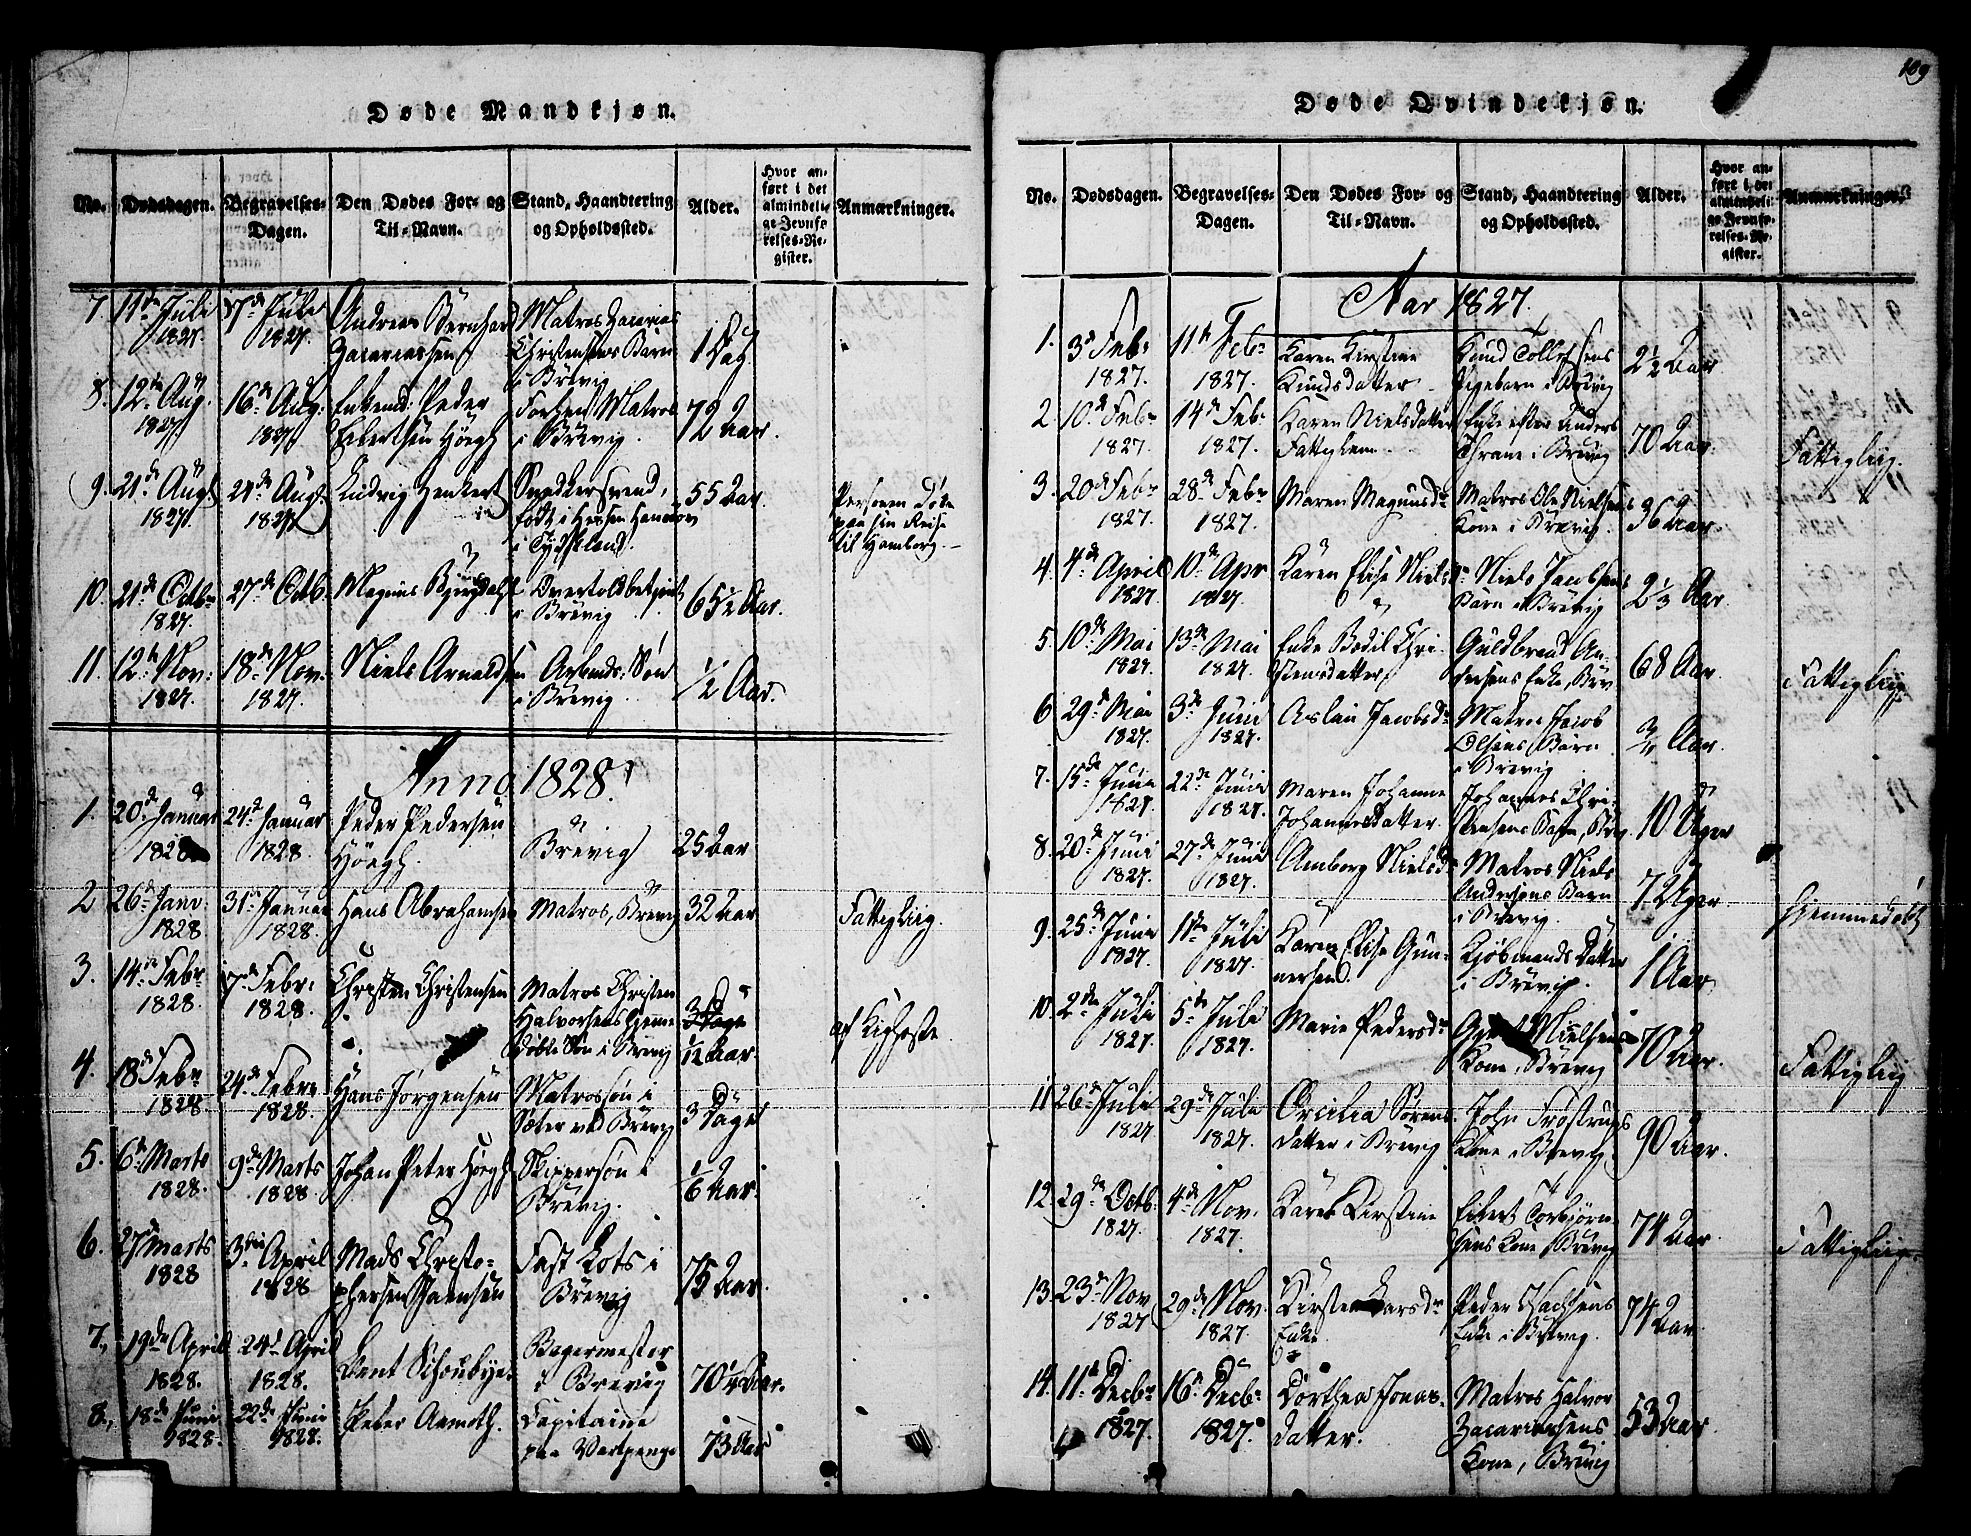 109
Døde Mandkjøn.
No. Dødsdagen. Begravelses-Dagen. Den Dødes For- og Til-Navn. Stand, Haandtering og Opholdssted. Alder. Hvor anført i det almindelige Jevnførelses-Register. Anmærkninger.
7. 11te Juli 17de Julii Andreas Bernhard Matros Zacarias
1827. 1827. Zacariassen Christensens Barn 1 Dag
i Brevig
8. 12te Aug. 16de Aug. Enkemd. Peder Forhen Matros 72 Aar.
1827. 1827. Eibertsen Höegh i Brevig.
9. 21de Augs. 24de Augs. Ludvig Henkert Snedkersvend, 55 Aar. Personen døde
1827. 1827. født i Hessen Hannov paa sin Reise
i Tydskland. til Hamborg.
10. 21de Octbr 27de Octb. Magnus Overtoldbetjent 65 1/2 Aar.
1827. i Brevig
11. 12te Nov: 18de Nov. Niels Arnoldsen Søn 1/2 Aar.
1827. 1827. i Brevig
Anno 1828.
1. 20de Januar 24de Januar Peder Pedersen Brevig 25 Aar
1828 1828. Höegh.
2 26de Janv. 31te Januar Hans Abrahamsen Matros, Brevig 32 Aar Fattiglig.
1828 1828.
3. 14de Febr 17de Febr. Christen Christensen Matros Christen 3 Dage
1828. 1828. Halvorsens hjemme
døbte Søn i Brevig 1/12 Aar. af Kighoste
4. 18de Febr 24de Febr Hans Jørgensen Matrossøn i 3 Dage
1828 1828. Sæter ved Brevig
5. 6te Marts 9de Marts Johan Peter Høegh Skippersøn i 1/6 Aar.
1828. 1828. Brevig.
6. 27 Marts 3die April Mads Christo- Fast Lots i 75 Aar.
1828 1828 phersen Brevig
7. 19de April 24de April Bent Schoubye. Bagermester 70 1/4 Aar.
1828. 1828. i Brevig
8. 18de Juni 22de Juni Peter Aamoth. Capitaine 73 Aar
1828. 1828. paa Vartpenge
Døde Qvindekjøn.
No. Dødsdagen. Begravelses-Dagen. Den Dødes For- og Til-Navn. Stand, Haandtering og Opholdssted. Alder. Hvor anført i det almindelige Jevnførelses-Register. Anmærkninger.
Aar 1827.
1. 3de Feb: 11te Feb: Karen Kirstine Knud Tollefsens 2 1/2 Aar
1827. 1827. Knudsdatter Pigebarn i Brevig
2. 10de Feb: 14de Feb: Karen Nielsdatter Enke efter Anders 70 Aar.
1827. 1827. Fattiglem. Thrane i Brevig Fattiglig.
3. 20de Feb: 28de Feb: Maren Magnusdr Matros Ole Nielsens 36 Aar.
1827. 1827. Kone i Brevig.
4. 4de April 10de Apr Karen Elise Nielsdr Niels Jacobsens 2 1/3 Aar
1827. 1827. Barn i Brevig
5. 10de Mai 13de Mai Enke Bodil Chri- Guldbrand An- 68 Aar.
1827. 1827. stensdatter dersens Enke, Brev Fattiglig
6 29de Mai 3de Juni Aslau Jacobsdr Matros Jacob 3/4 Aar.
1827. 1827. Olsens Barn
i Brevig
7. 15de Juni 22de Juni Maren Johanne Johannes Chri- 10 Uger
1827. 1827. Johannesdatter. stensens Barn, Brev.
8. 20de Juni 27de Juni Amborg Nielsdr Matros Niels 7 Uger
1827. 1827. Andersens Barn
i Brevig. hjemmedøbt
9. 25de Juni 1ste Juli Karen Elise Gun- Kjøbmands Datter 1 Aar
1827. 1827. nersend. i Brevig.
10. 2den Juli 5te Juli Marie Pedersdr Nielsens 70 Aar.
1827. 1827. Kone, Brevig Fattiglig
11 26de Juli 29de Juli Cecilia Sørens- John Frøstrups 90 Aar.
1827. 1827. datter i Brevig Kone i Brevig.
12. 29de Octb: 4de Nov. Karen Kirstine Eibert Torbjørn- 74 Aar
1827. 1827. sens Kone, Brevig Fattiglig
13. 23de Nov 29de Nov. Kirsten Larsdr Peder Isachsens 74 Aar.
1827 1827. Enke. Enke i Brevig.
14. 11te Decbr. 16de Decb: Dorthea Jonas- Matros Halvor 53 Aar
1827. 1827. datter. Zacariasens
Kone, Brevig